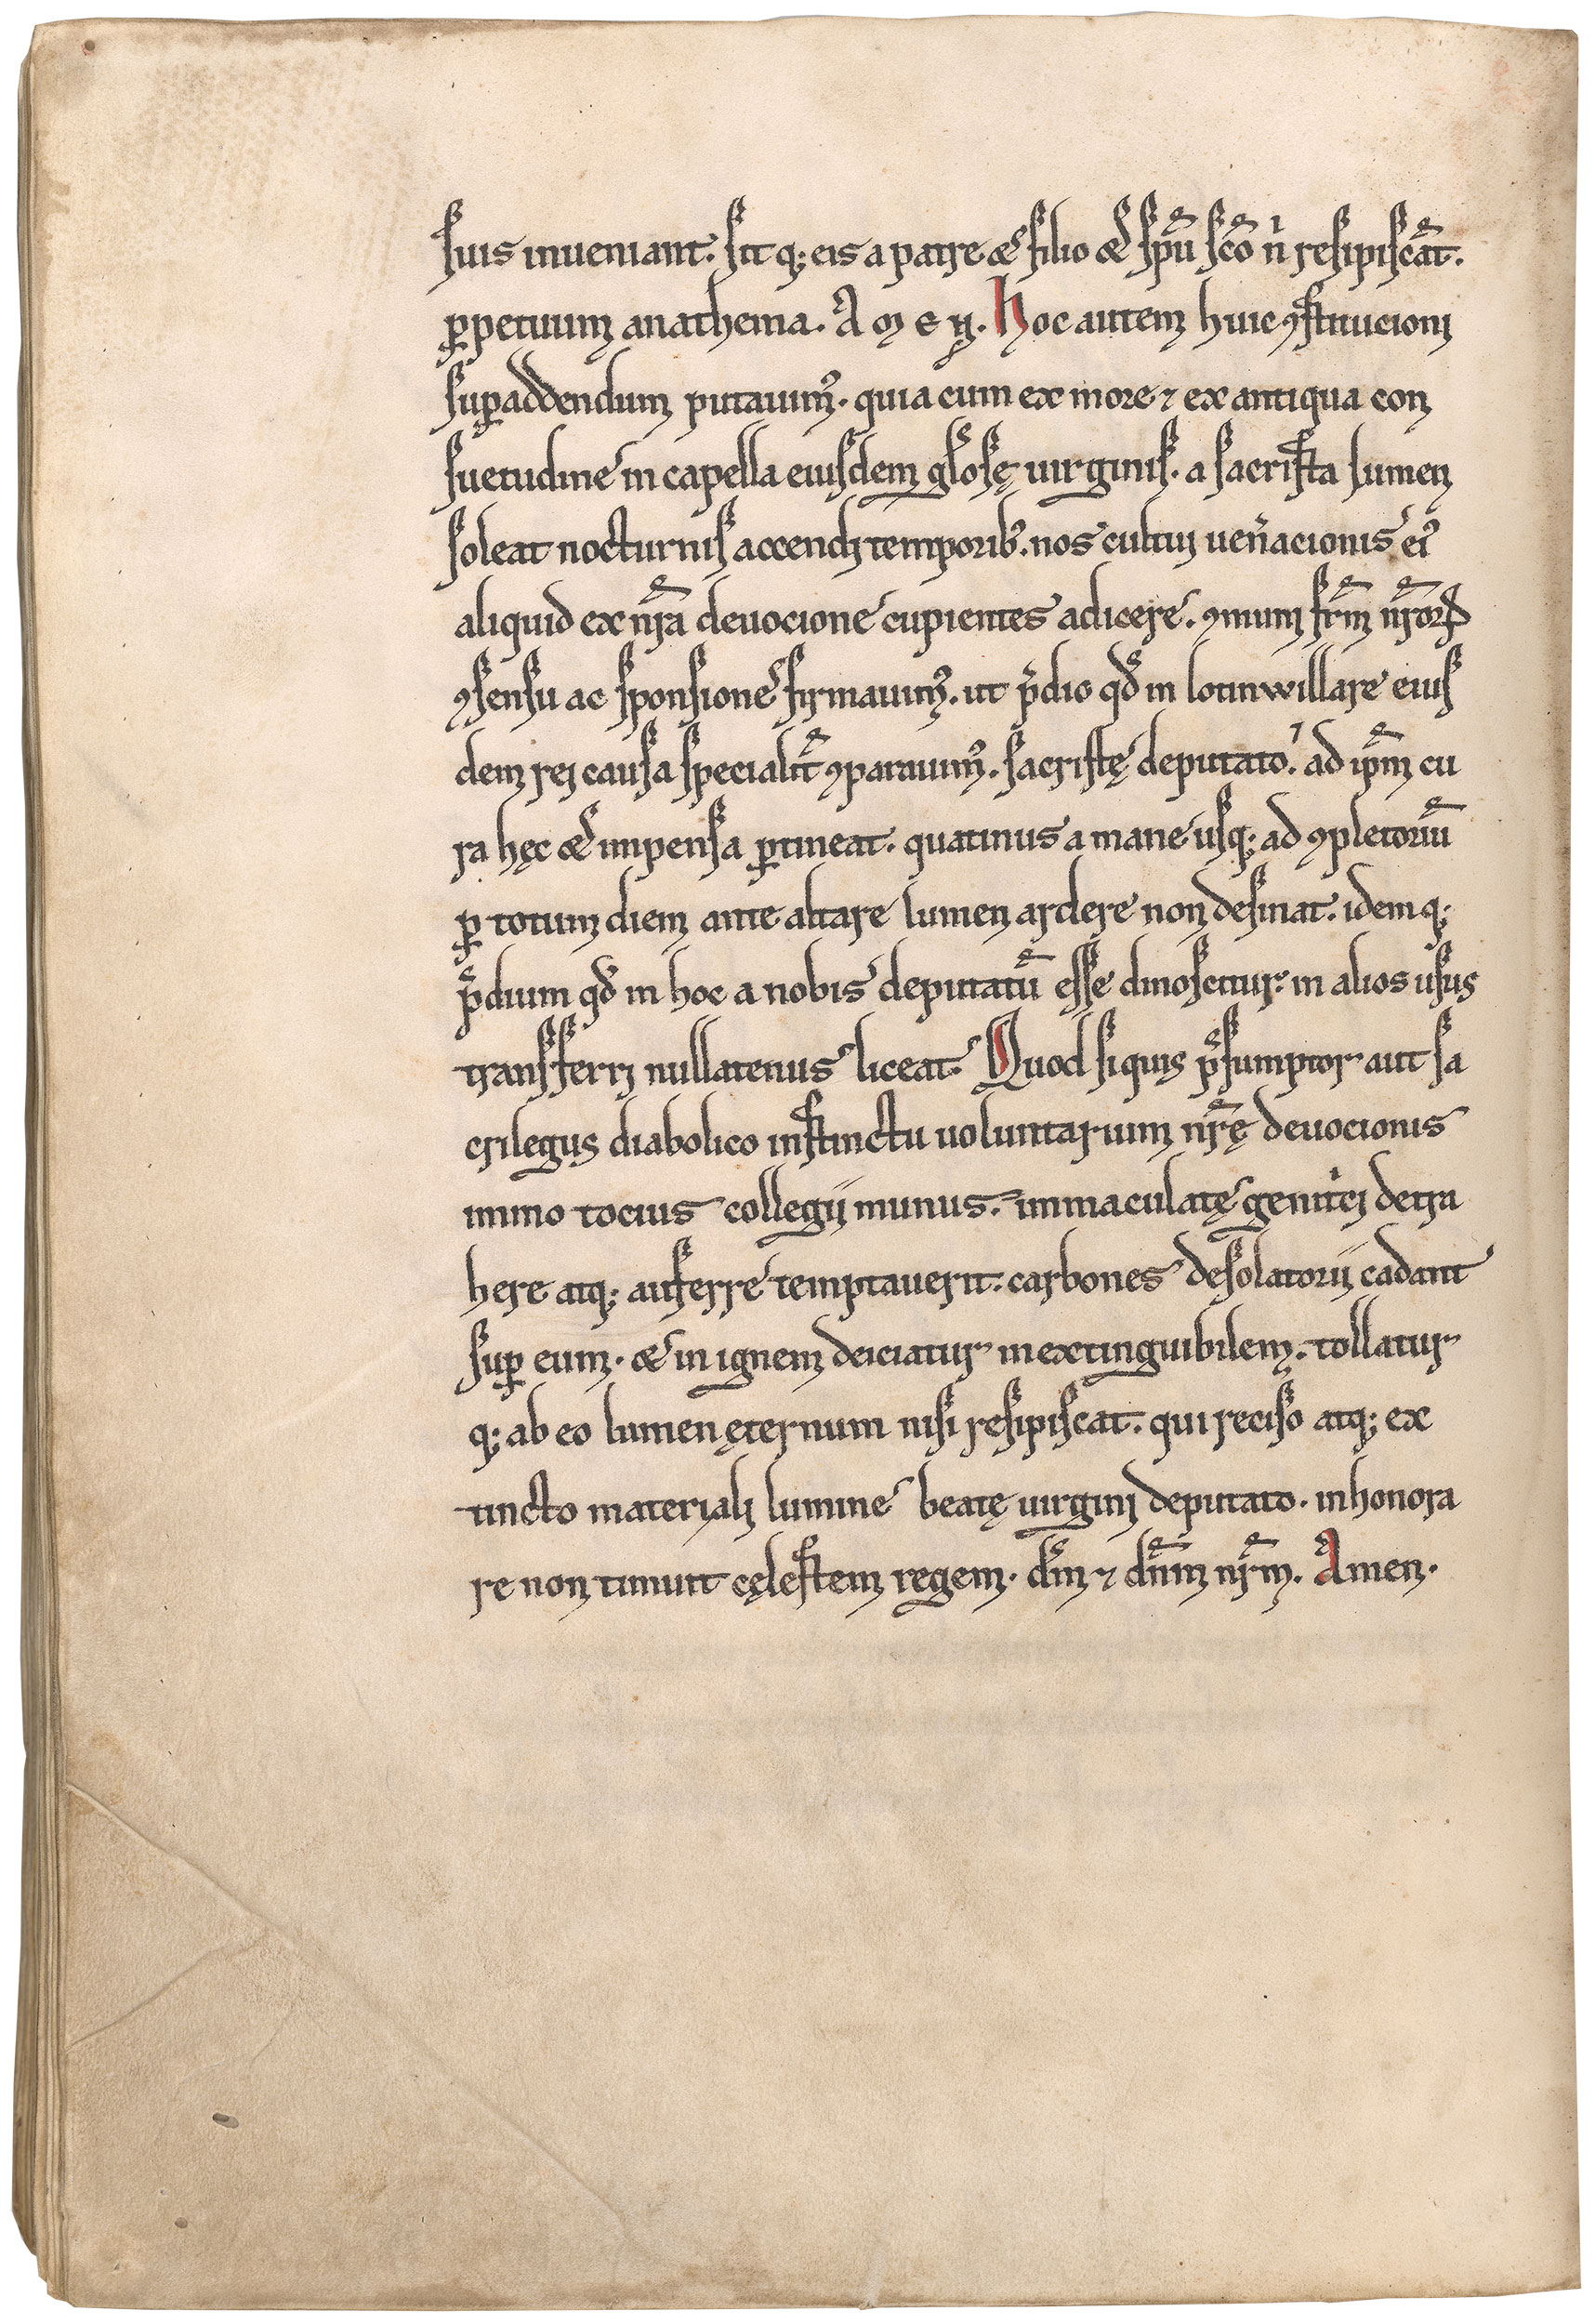 suis inueniant. sit q; eis a patre & filio & spū scō ń resipiscāt.
ꝑpetuum anathema. A M E N. Hoc autem huic ꝯstitucioni
suꝑaddendum putauimꝰ. quia cum ex more ⁊ ex antiqua con
suetudine in capella eiusdem gl̄osę uirginis. a sacrista lumen
soleat nocturnis accendi temporibꝰ. nos cultui uen̄acionis eiꝰ
aliquid ex nr̄a deuocione cupientes adicere. ꝯmuni fr̄m nr̄oꝝ
ꝯsensu ac sponsione firmauimꝰ. ut p̄dio qd̄ in lotinwillare eius
dem rei causa specialit̄ ꝯparauimꝰ. sacristę deputato. ad ip̄m cu
ra hęc & impensa ꝑtineat. quatinus a mane usq; ad ꝯpletoriū
ꝑ totum diem ante altare lumen ardere non desinat. idemq;
p̄dium qd̄ in hoc a nobis deputatū esse dinoscitur. in alios usus
transferri nullatenus liceat. Quod siquis p̄sumptor aut sa
crilegus diabolico instinctu uoluntarium nr̄ę deuocionis
immo tocius collegii munus. immaculatę genitͥci detra
here atq; auferre temptauerit. carbones desolatorii cadant
suꝑ eum. & in ignem deiciatur inextinguibilem. tollatur
q; ab eo lumen ęternum nisi resipiscat. qui reciso atq; ex
tincto materiali lumine beatę uirgini deputato. inhonora
re non timuit cęlestem regem. dm̄ ⁊ dn̄m nr̄m. Amen.